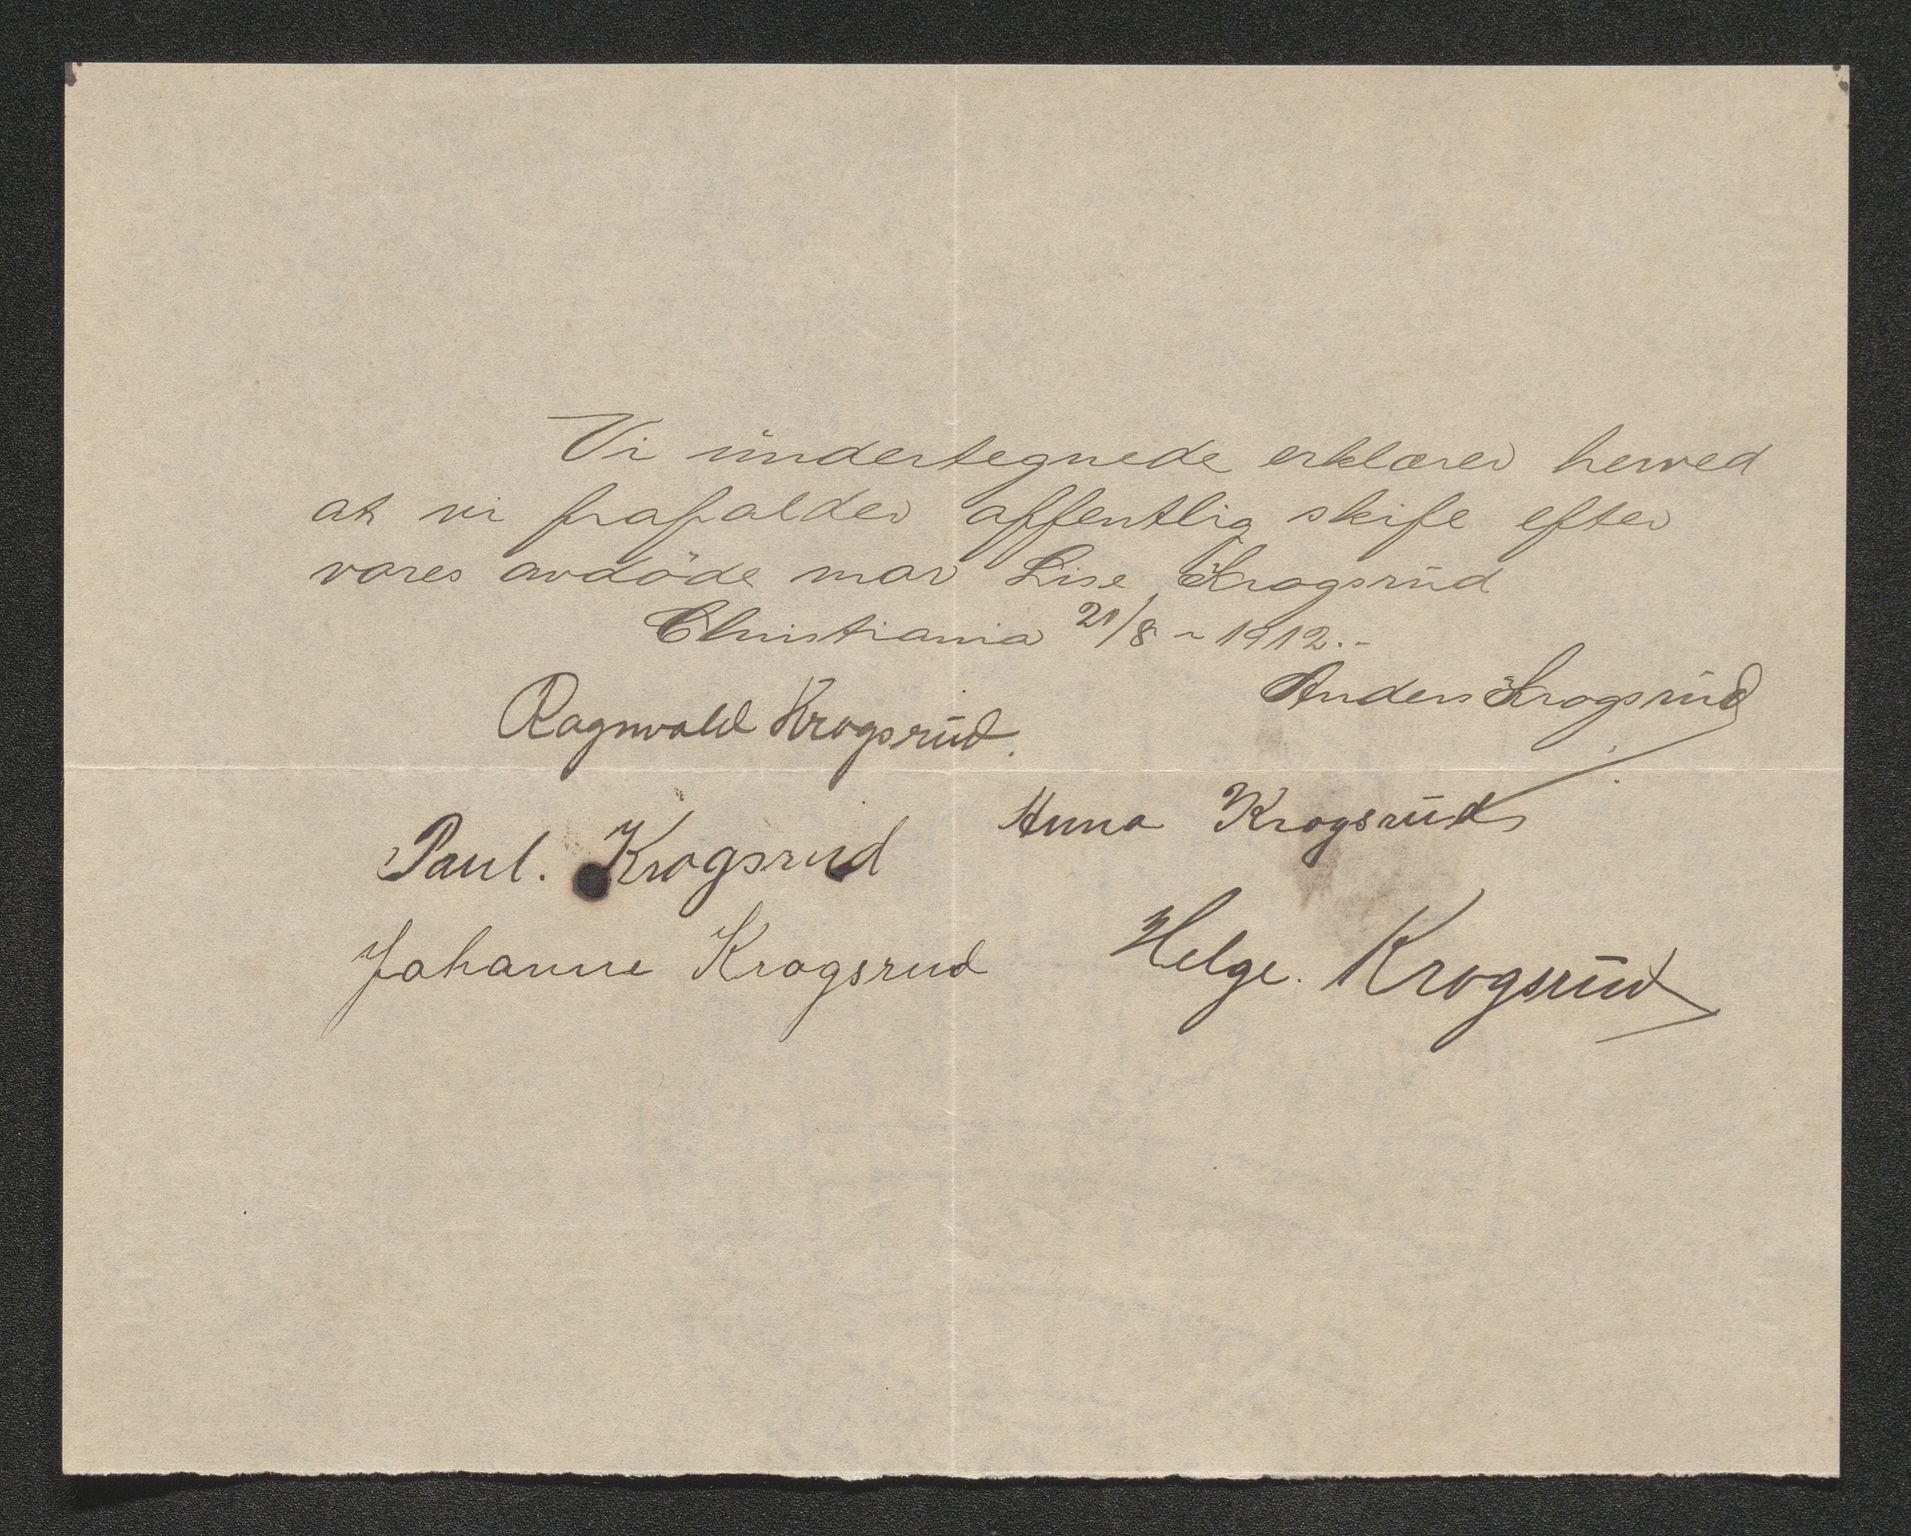 Vi undertegnede erklærer herved
at vi frafalder offentlig skifte efter
vores avdöde mor Lise Krogsrud
Christiania 21/8 - 1912.-
Anders Krogsrud
Ragnvald Krogsrud.
Anna Krogsrud
Paul. Krogsrud
Johanne Krogsrud
Helge. Krogsrud